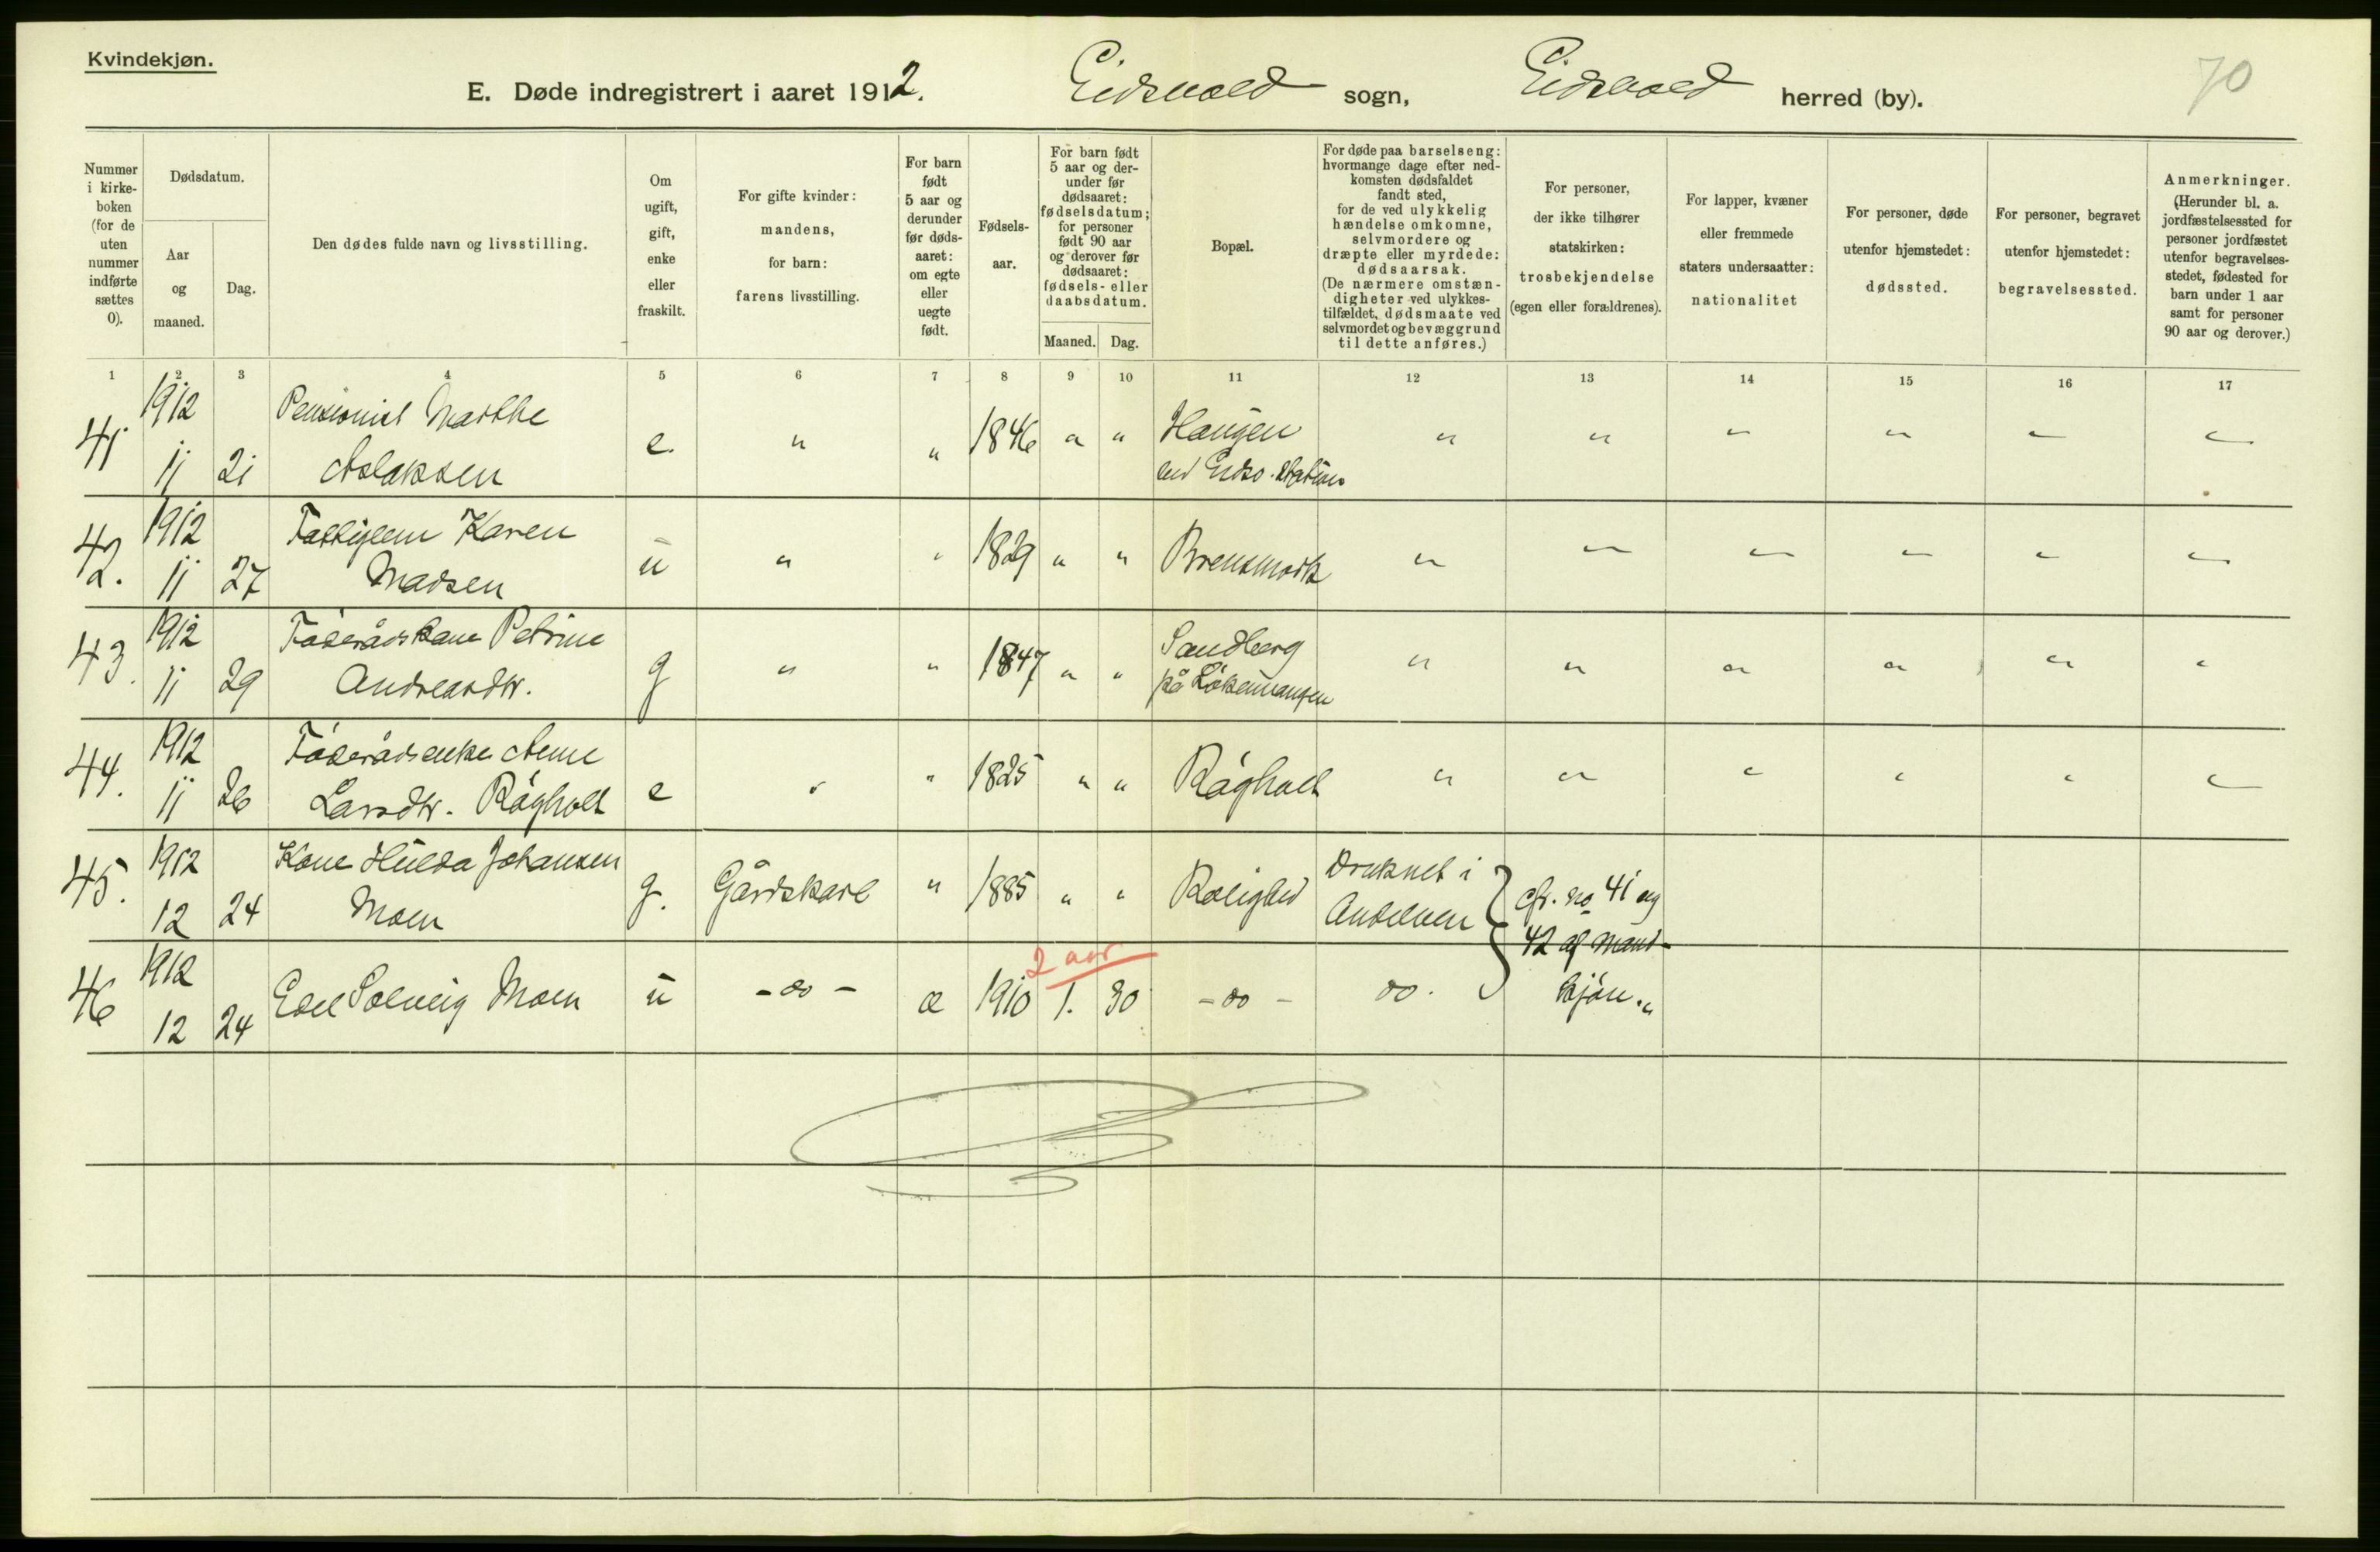 Kvindekjøn.
E. Døde indregistrert i aaret 1912. Eidsvold sogn, Eidsvold herred (by). 70
Nummer i kirke-boken (for de uten nummer indførte sættes 0).
Dødsdatum.
Aar og maaned.
Dag.
Den dødes fulde navn og livsstilling.
Om ugift, gift, enke eller fraskilt.
For gifte kvinder: mandens, for barn: farens livsstilling.
For barn født 5 aar og derunder før døds-aaret: om egte eller uegte født.
Fødsels-aar.
For barn født 5 aar og der-under før dødsaaret: fødselsdatum; for personer født 90 aar og derover før dødsaaret: fødsels- eller daabsdatum.
Maaned. Dag.
Bopæl.
For døde paa barselseng: hvormange dage efter ned-komsten dødsfaldet fandt sted, for de ved ulykkelig hændelse omkomne, selvmordere og dræpte eller myrdede: dødsaarsak. (De nærmere omstæn-digheter ved ulykkes-tilfældet, dødsmaate ved selvmordet og bevæggrund til dette anføres.)
For personer, der ikke tilhører statskirken: trosbekjendelse (egen eller forældrenes).
For lapper, kvæner eller fremmede staters undersaatter: nationalitet
For personer, døde utenfor hjemstedet: dødssted.
For personer, begravet utenfor hjemstedet: begravelsessted.
Anmerkninger. (Herunder bl. a. jordfæstelsessted for personer jordfæstet utenfor begravelses-stedet, fødested for barn under 1 aar samt for personer 90 aar og derover.)
1 2 3 4 5 6 7 8 9 10 11 12 13 14 15 16 17
41 1912 11 21 Pensionist Marthe
Aslaksen e. " " 1846 " " Haugen
ved Eidsv. station " " " " " "
42. 1912 11 27 Fattiglem Karen
Madsen u " " 1829 " " Brensmork " " " " " "
43. 1912 11 29 Föderådskone Petrine
Andreasdtr. g " " 1847 " " Sandberg
på Lökenmangen " " " " " "
44. 1912 11 26 Föderådsenke Anne
Larsdtr. Råholt e " " 1825 " " Råholt " " " " " "
45. 1912 12 24 Kone Hulda Johansen
Moen g. Gårdskarl " 1885 " " Rolighed Druknet i
Andelven } cfr. no 41 og
42 af Mand-
kjön. "
2 aar
46 1912 12 24 Edel Solveig Moen u - do - æ 1910 1. 30 - do - do.